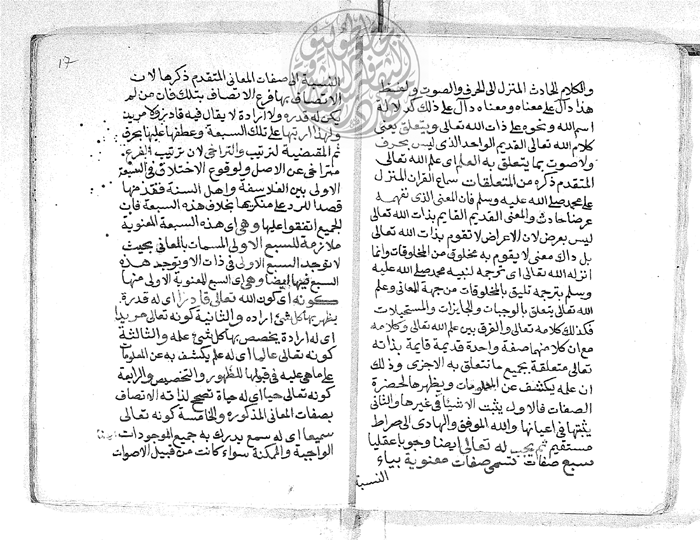 والكلام الحادث المنزل الى الحرف والصوت واللفظ
هذا دال على معناه ومعناه دال على ذلك كدلالة
اسم الله ونحوه على ذات الله تعالى ويتعلق يعنى
كلام الله تعالى القديم الواحد الذى ليس بحرف
ولا صوت بما يتعلق به العلم اى علم الله تعالى
المتقدم ذكره من المتعلقات سماع القران المنزل
على محمد صلى الله عليه وسلم فان المعنى الذى نفهمه
عرضا حادث والمعنى القديم القايم بذات الله تعالى
ليس بعرض لان الاعراض لا تقوم بذات الله تعالى
بل ذاك معنى لا يقوم به مخلوق من المخلوقات وانما
انزله الله تعالى اى ترجمه لنبيه محمد صلى الله عليه
وسلم بترجمه تليق بالمخلوقات من جهة المعانى وعلم
الله تعالى يتعلق بالواجبات والجايزات والمستحيلات
فكذلك كلامه تعالى والفرق بين علم الله تعالى وكلامه
مع ان كلا منهما صفة واحدة قديمة قايمة بذاته
تعالى متعلقة بجميع ما تتعلق به الاخرى وذلك
ان علمه يكشف عن المعلومات ويظهرها لحضرة
الصفات فالاول يثبت الاشيا فى غيرها والثانى
يثبتها فى اعيانها والله الموفق والهادى الى صراط
مستقيم ثم يجب له تعالى ايضا وجوبا عقليا
سبع صفات تسمى صفات معنوية بياء
النسبة
١٧
النسبة الى صفات المعانى المتقدم ذكرها لان
الاتصاف بها فرع الاتصاف بتلك فان من لم
يكن له قدره ولا ارادة لا يقال فيه قادر ولا مريد
ولهذا رتبها على تلك السبعة وعطفها عليها بحرف
ثم المقتضية لترتيب والتراخى لان ترتيب الفرع
متراخى عن الاصل ولوقوع الاختلاف فى السبعة
الاولى بين الفلاسفة واهل السنة فقدمها
قصدا للرد على منكريها بخلاف هذه السبعة فان
الجميع اتفقوا عليها وهى اى هذه السبعة المعنوية
ملازمة للسبع الاولى المسمات بالمعانى بحيث
لا توجد السبع الاولى فى ذات الا وتوجد هذه
السبع فيها ايضا وهى اى السبع المعنوية الاولى منها
كونه اى كون الله تعالى قادرا اى له قدرة
يظهر بها كل شئ اراده والثانية كونه تعالى مريدا
اى له ارادة يخصص بها كل شئ علمه والثالثة
كونه تعالى عالما اى له علم يكشف به عن المعلومات
على ماهى عليه فى قبولها للظهور والتخصيص والرابعة
كونه تعالى حيا اى له حياة تصحح لذاته الاتصاف
بصفات المعانى المذكوره والخامسة كونه تعالى
سميعا اى له سمع يدرك به جميع الموجودات
الواجبة والممكنة سواء كانت من قبيل الاصوات